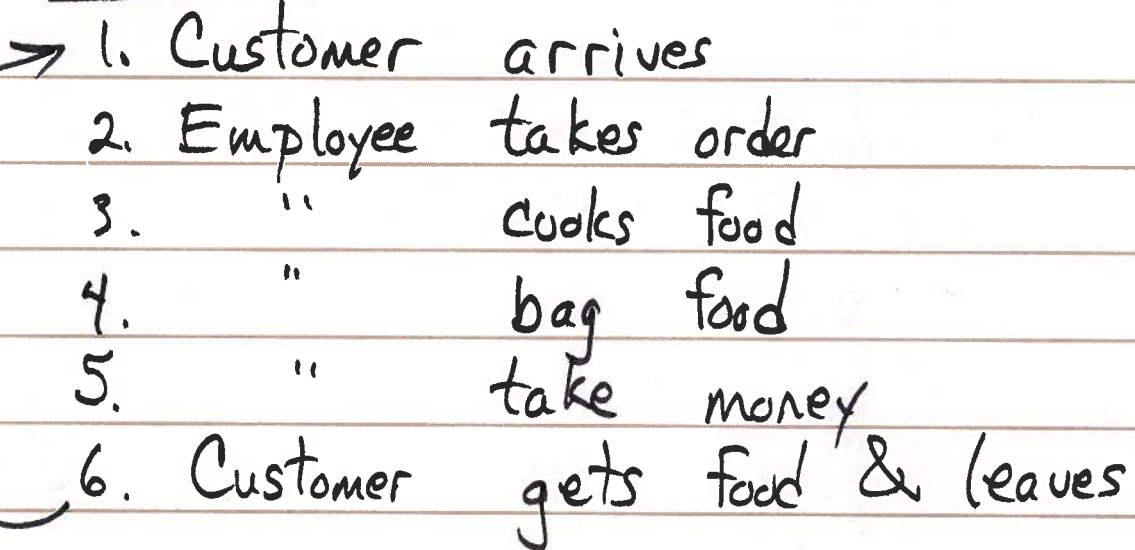 1. Customer arrives
2. Employee takes order
3. " cooks food
4. " bag food
5. " take money
6. Customer gets food & leaves